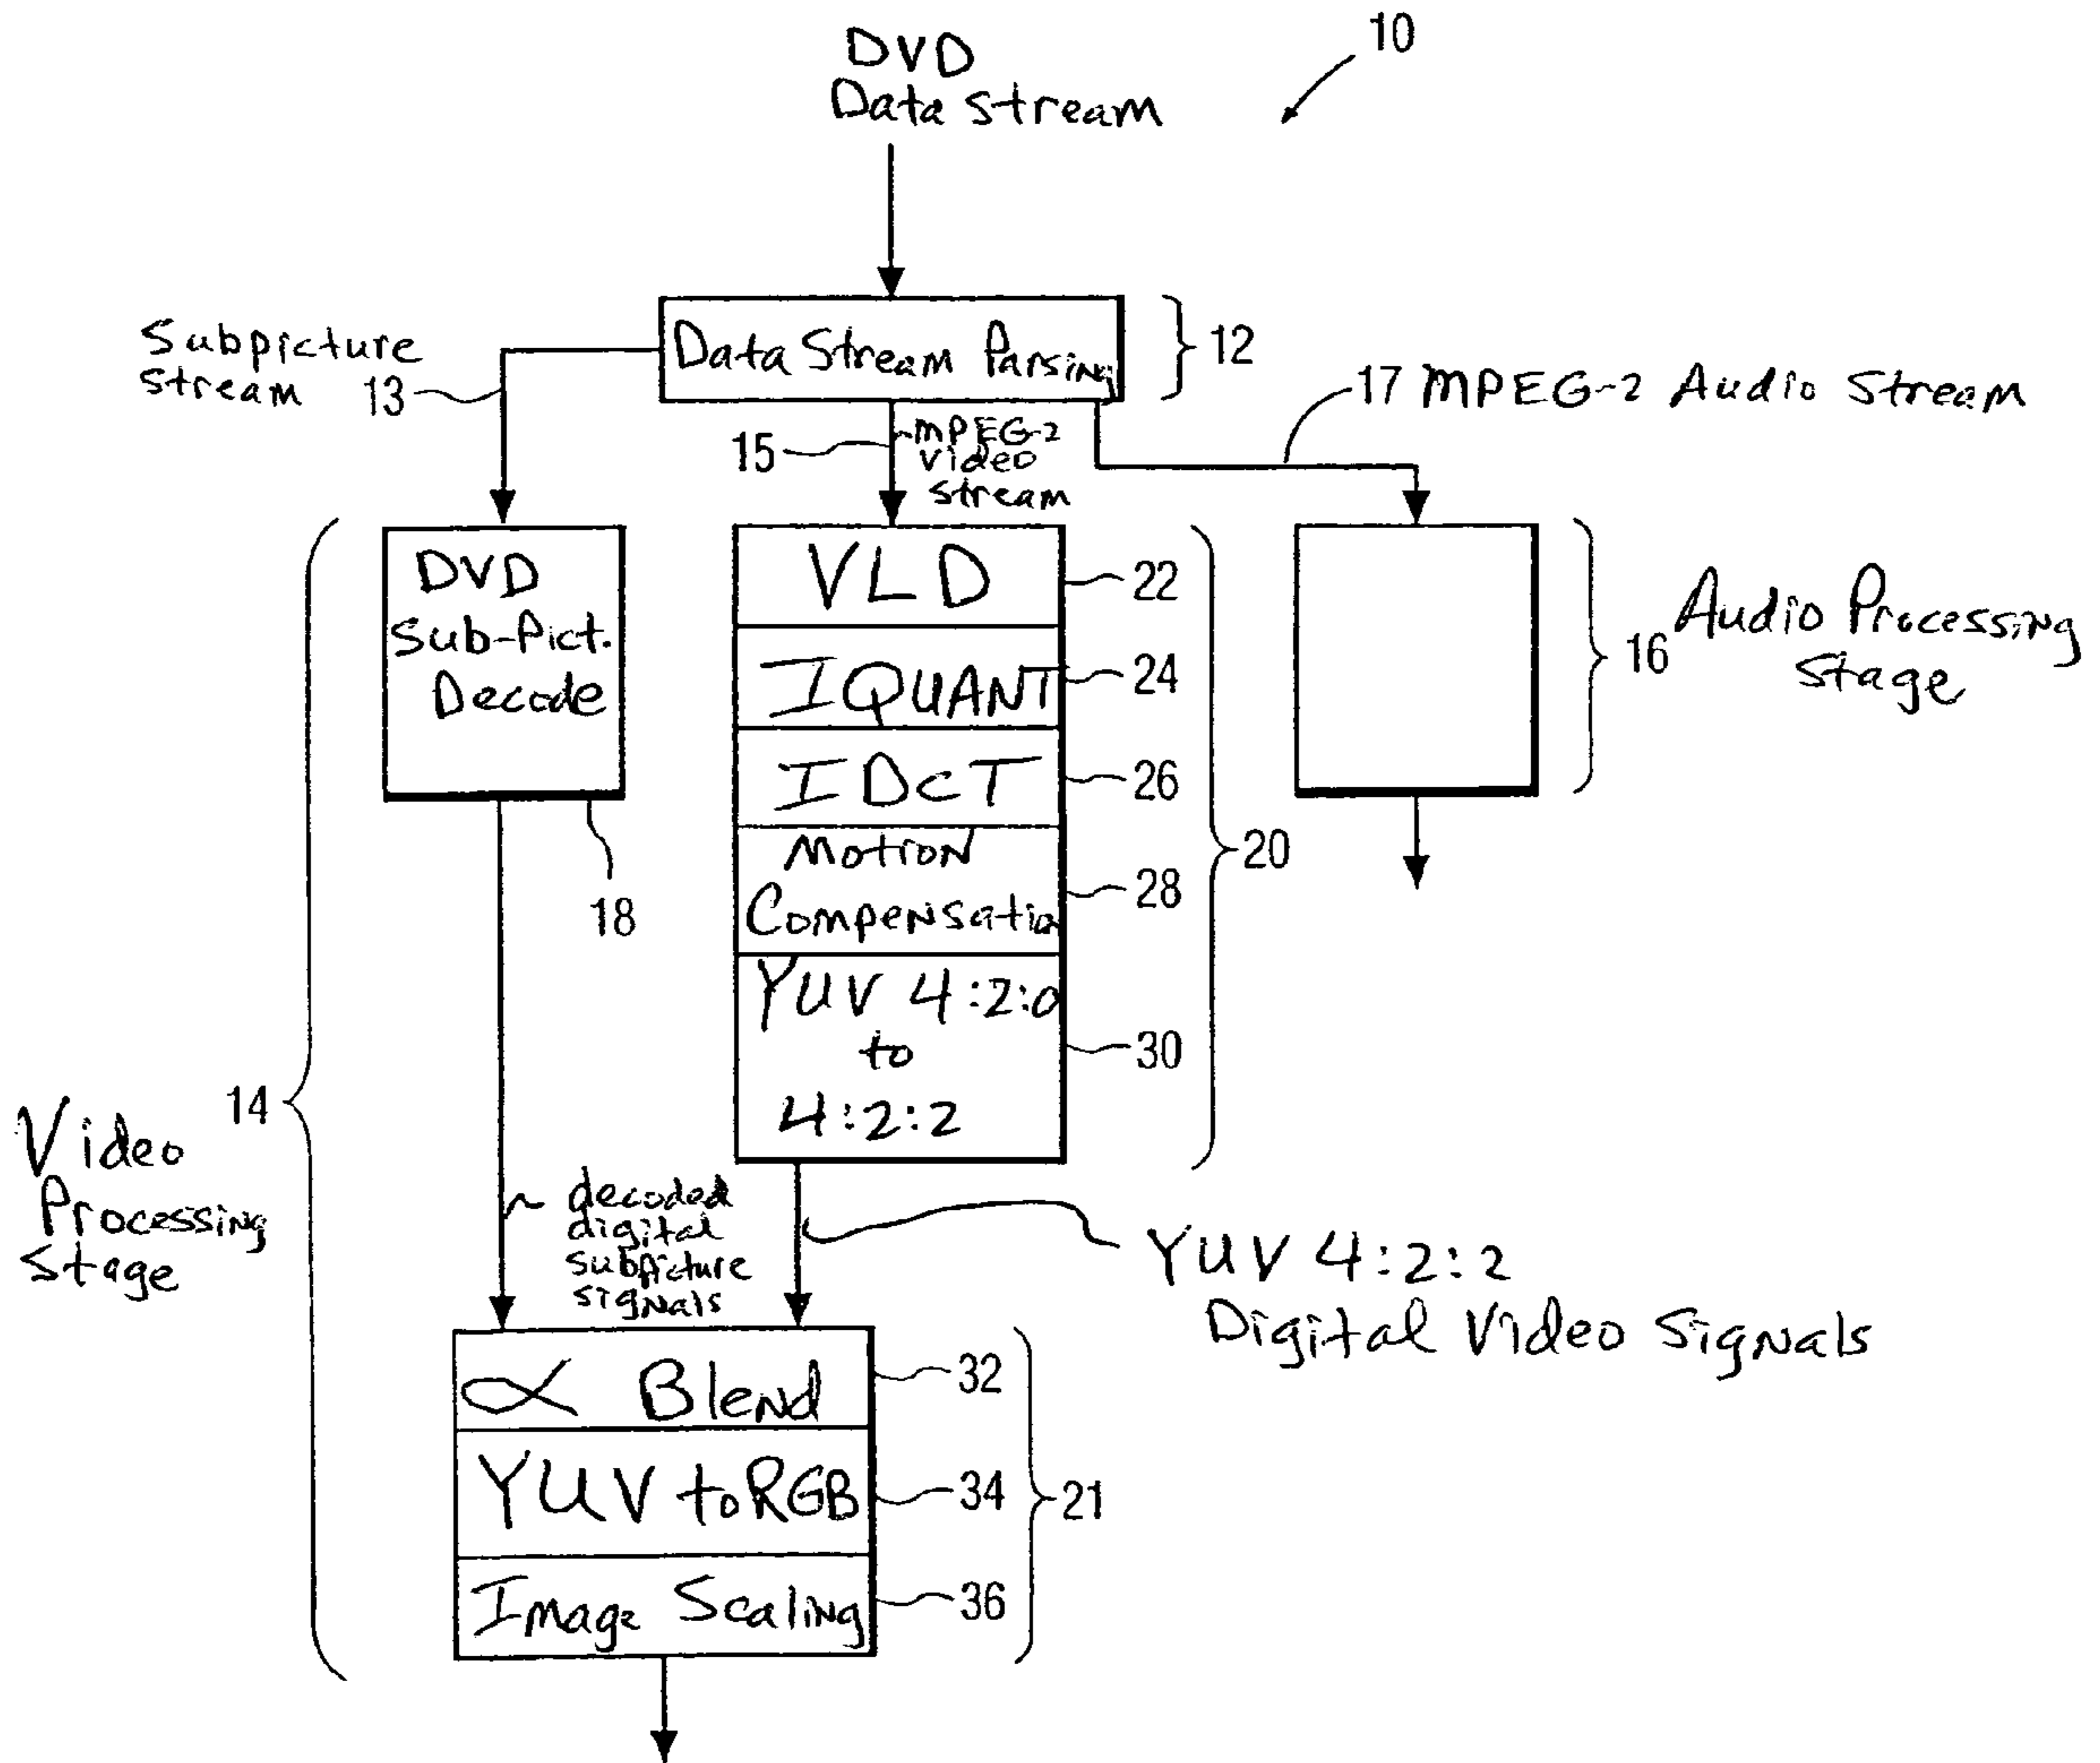 DVD
Data Stream
10
Data Stream Parsing
12
Subpicture
stream 13
17 MPEG-2 Audio Stream
15
MPEG-2
video
stream
DVD
Sub-Pict.
Decode
18
VLD
22
IQUANT
24
IDCT
26
Motion
Compensation
28
YUV 4:2:0
to
4:2:2
30
20
16
Audio Processing
Stage
14
Video
Processing
Stage
decoded
digital
subpicture
signals
YUV 4:2:2
Digital Video Signals
∝ Blend
32
YUV to RGB
34
Image Scaling
36
21